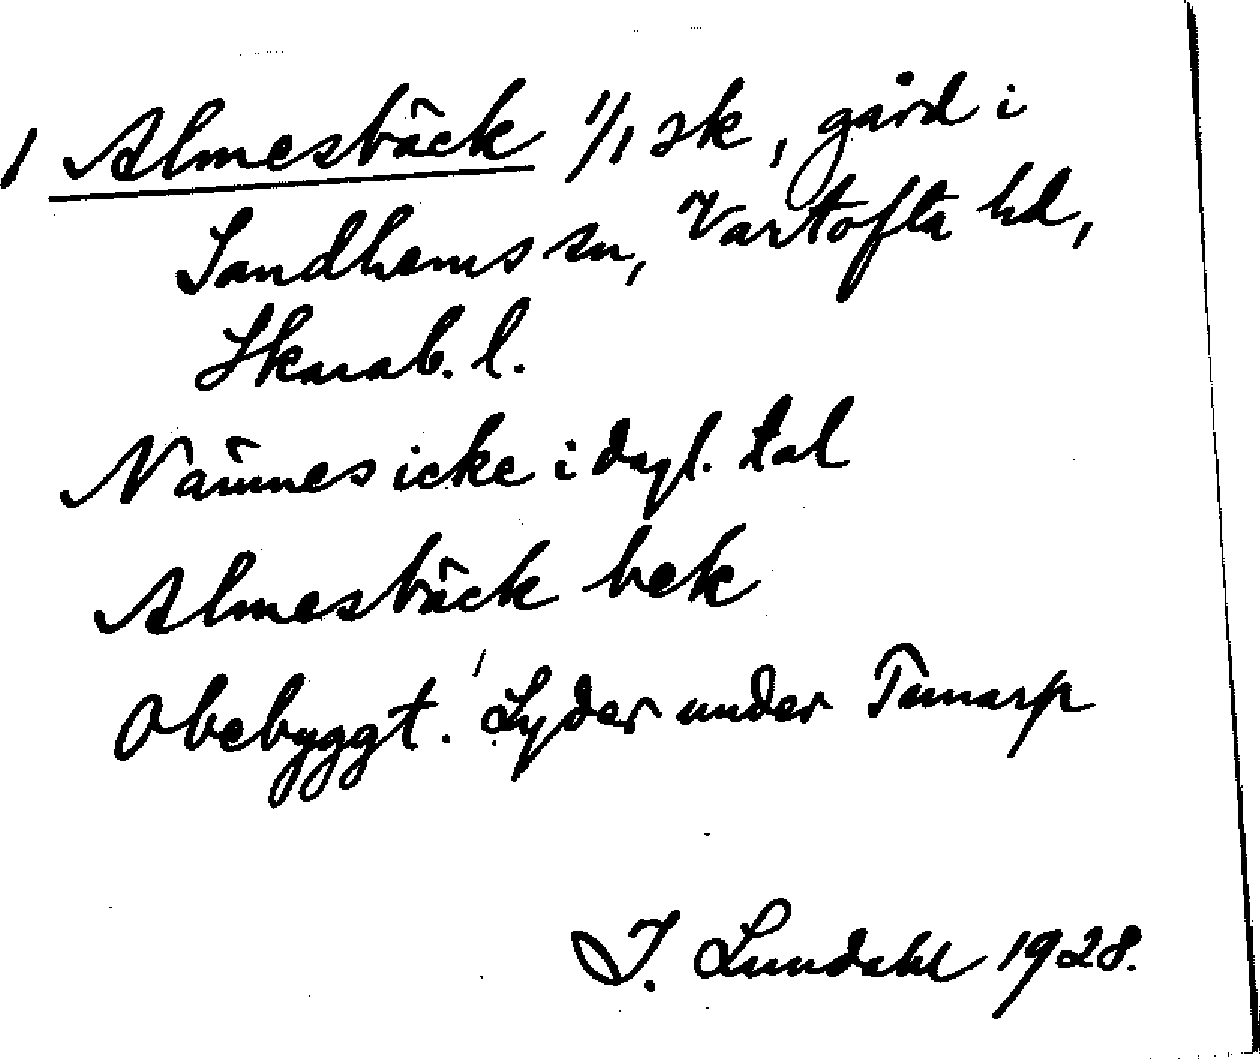 1 Almesbäck 1/1 sk, gård i
Sandhems sn, Vartofta hd,
Skarab. l.
Nämnes icke i dagl. tal
Almesbäck bek
Obebyggt. Lyder under Tunarp
I. Lundahl 1928.